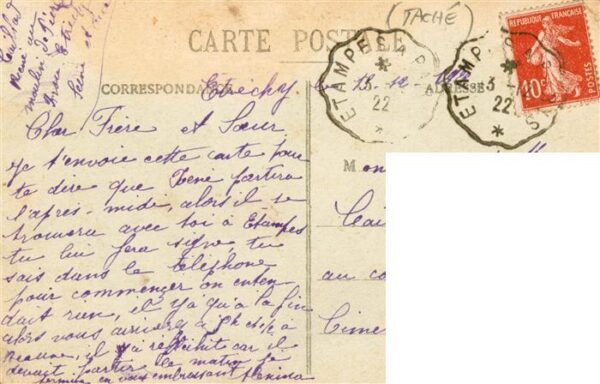 (TACHÉ)
CARTE POSTALE
REPUBLIQUE FRANÇAISE
10c
POSTES
ETAMPES A P
22
ETAMP
22
CORRESPONDANCE
ADRESSE
Rue du
moulin
Etrechy
Cher Frère et Sœur
je t'envoie cette carte pour
te dire que René partira
l'après-midi, alors il se
trouvera avec toi à Etampes
tu lui fera signe, tu
sais dans le téléphone
pour commencer on enten
dait rien, il y a qu'à la fin
alors vous arriverez à
Beaune, il réfléchit car il
devait partir le matin je
termine en vous embrassant
M
au co
Cime